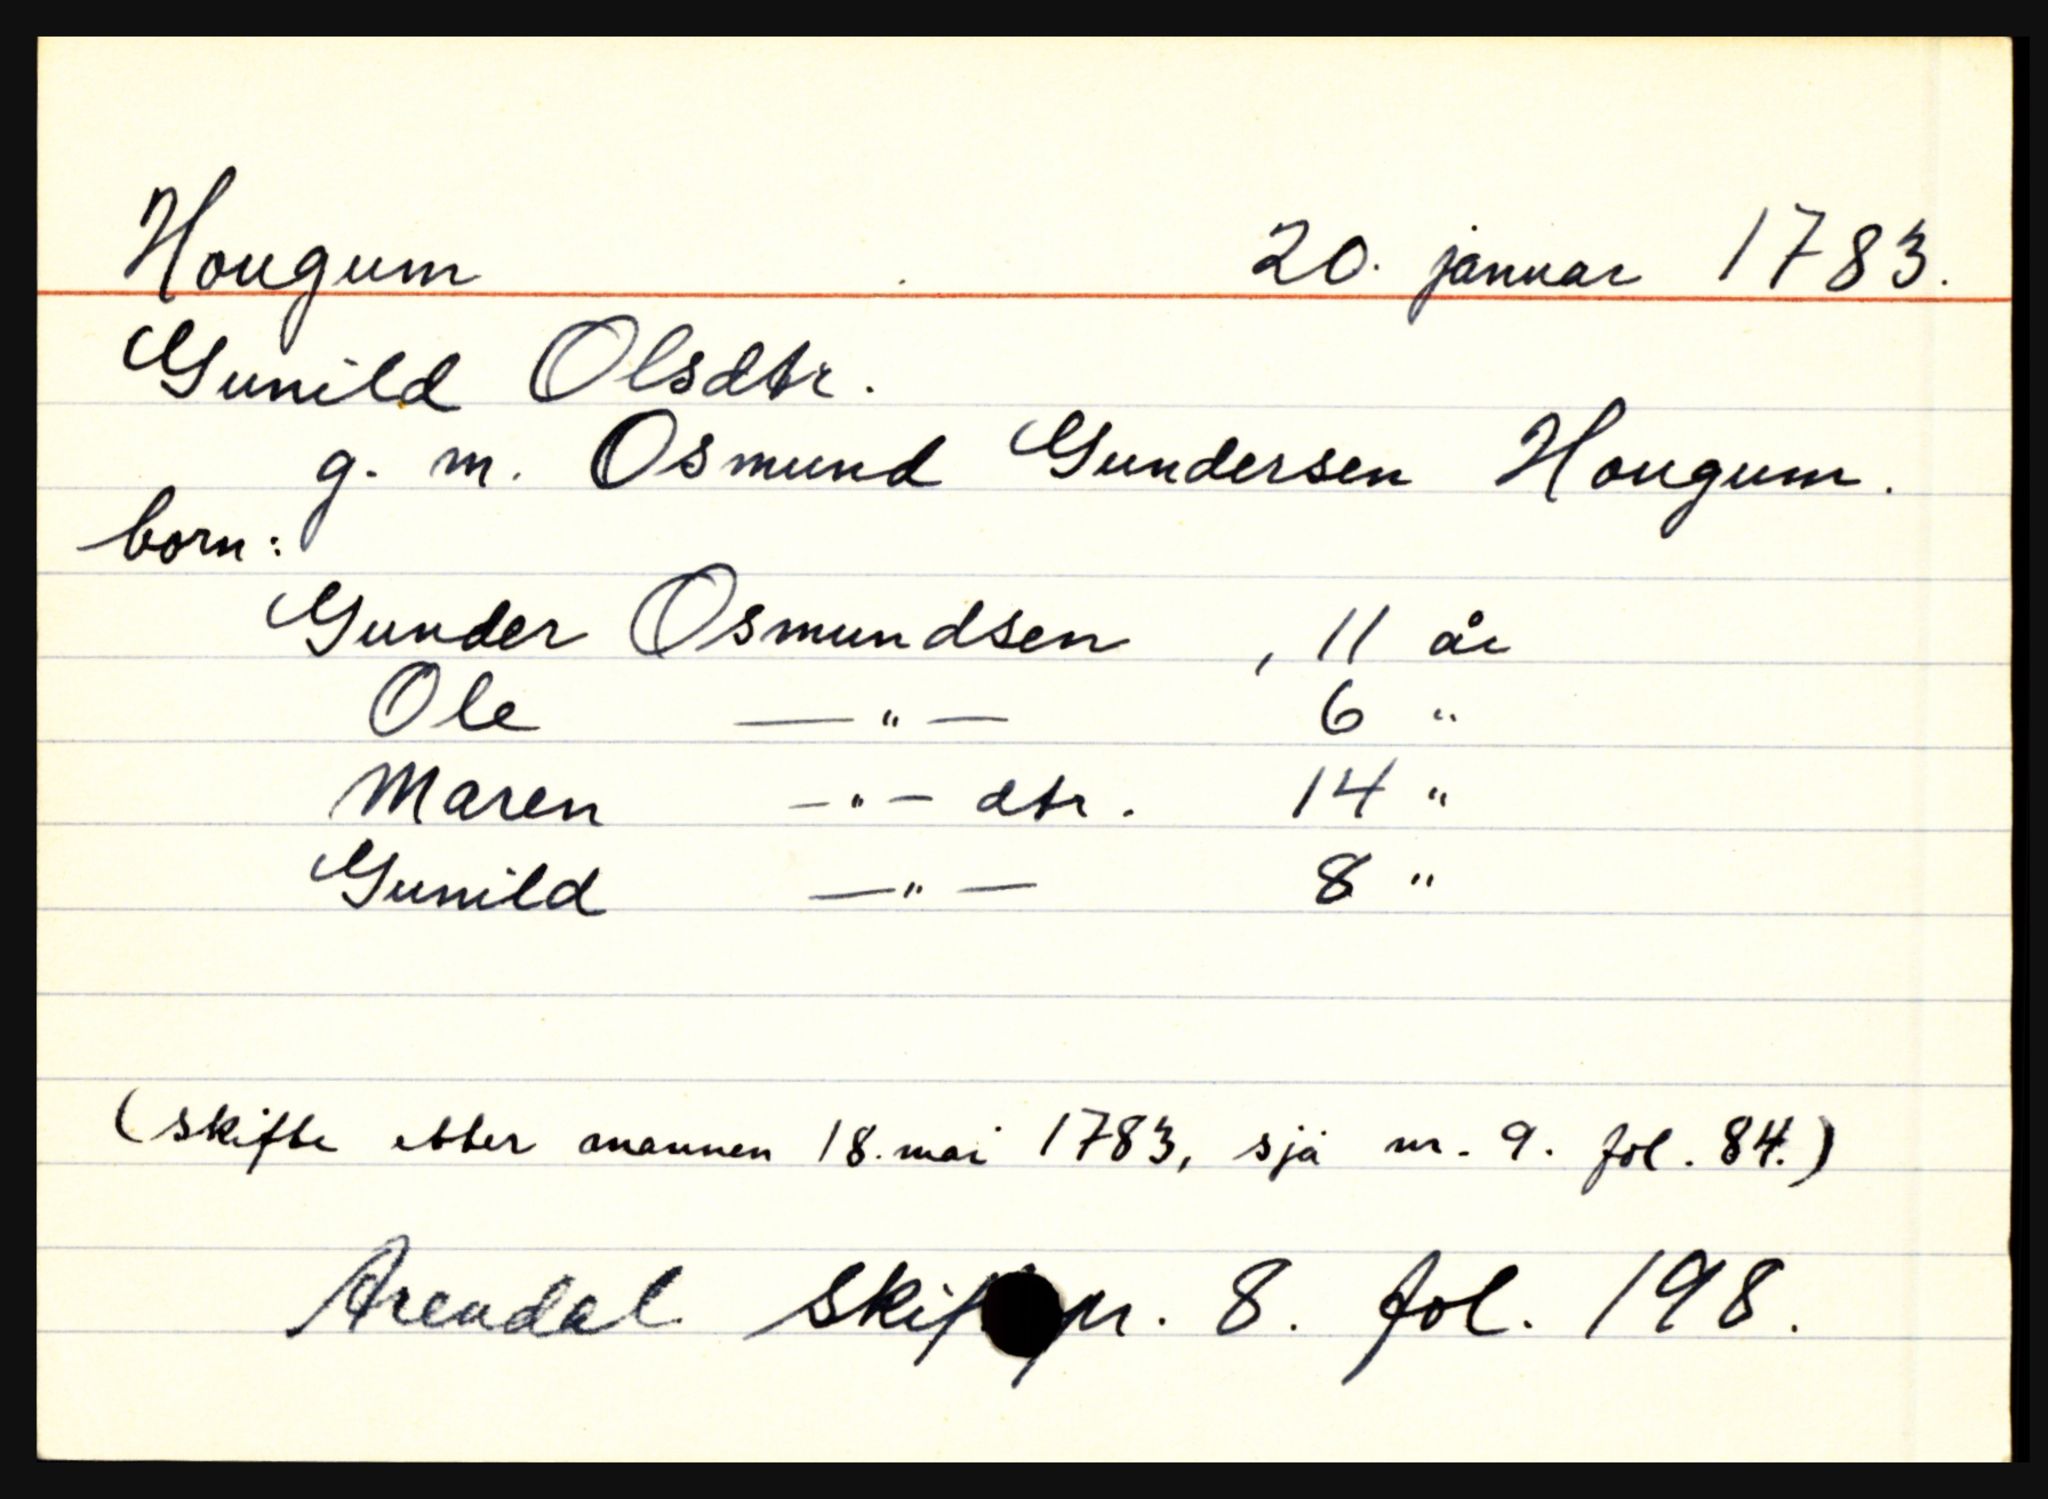 Hougum 20. januar 1783.
Gunild Olsdtr.
g. m. Osmund Gundersen Hougum.
born:
Gunder Osmundsen , 11 år
Ole —"— 6 "
Maren —"— dtr. 14 "
Gunild —"— 8 "
(skifte etter mannen 18. mai 1783, sjå nr. 9. fol. 84.)
Arendal 8. fol. 198.